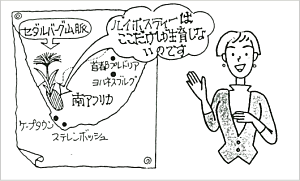 セダルバーグ山脈
ルイボスティーは
ここだけしか生育しな
いのです
首都プレトリア
ヨハネスブルグ
南アフリカ
ケープタウン
ステレンボッシュ